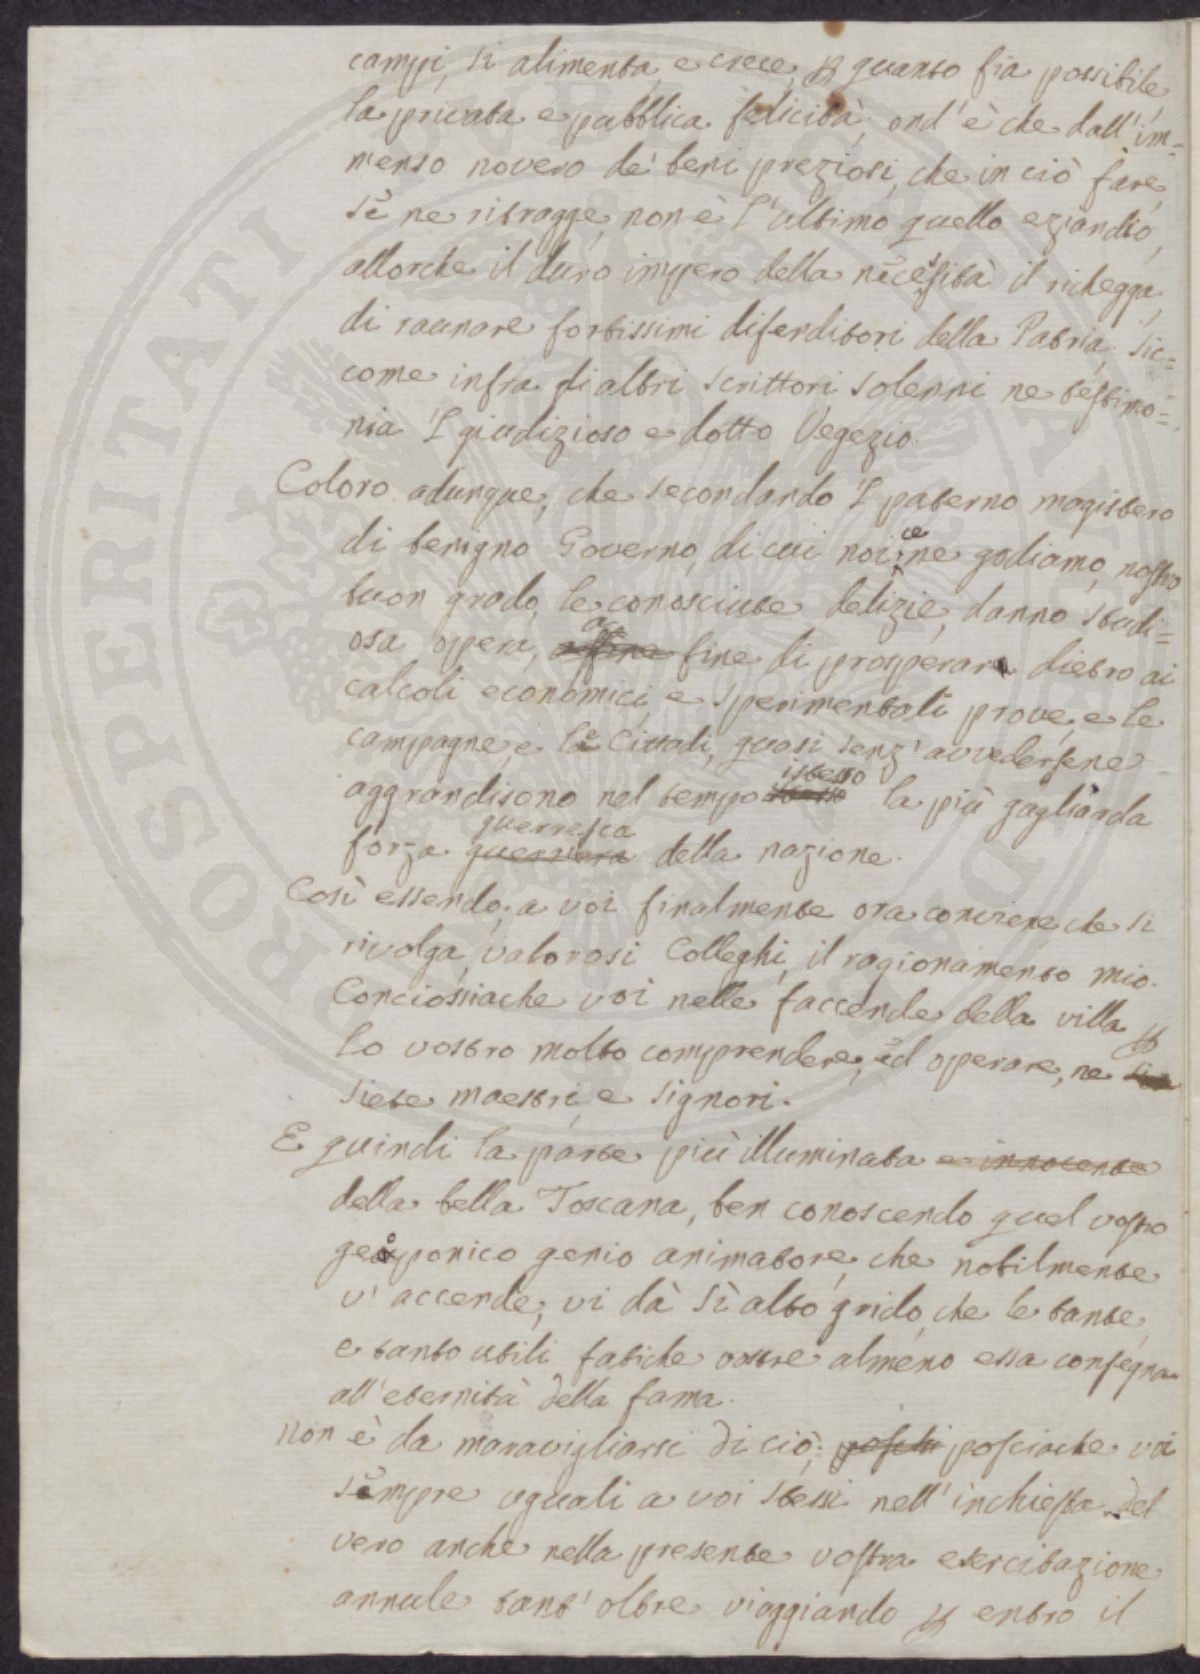 campi, si alimenta, e crece, p quanto fia possibile,
la privata e pubblica felicità; ond'è che dall'im=
menso novero de' beni preziosi, che in ciò fare,
se ne ritragge, non è l'ultimo quello eziandio,
allorche il duro impero della necessità il richegga,
di raunare fortissimi difenditori della Patria. Sic=
come infra gli altri scrittori solenni ne testimo=
nia 'l giudizioso e dotto Vegezio.
Coloro adunque, che secondando 'l paterno magistero
di benigno Governo, di cui noi ce ne godiamo, nostro
buon grado, le conosciute delizie, danno studi=
osa opera, a fine di prosperare dietro ai
calcoli economici, e sperimentali prove, e le
campagne, e le Cittadi, quasi senz'avvedersene
aggrandisono nel tempo istesso la più gagliarda
forza guerresca guerriera della nazione.
Così essendo, a voi finalmente ora conviene, che si
rivolga, valorosi Colleghi, il ragionamento mio.
Conciossiache voi nelle faccende della villa p
lo vostro molto comprendere, ed operare, ne
siete maestri, e signori.
E quindi la parte più illuminata e innocente
della bella Toscana, ben conoscendo quel vostro
geoponico genio animatore, che nobilmente
v'accende, vi dà sì alto grido, che le tante,
e tanto utili fatiche vostre almeno essa consegna
all'eternità della fama.
Non è da maravigliarsi di ciò; posciache voi
sempre uguali a voi stessi nell'inchiesta del
vero anche nella presente vostra esercitazione
annule tant'oltre viaggiando p entro il
PROSPERITATI PVBLICAE AVGENDAE